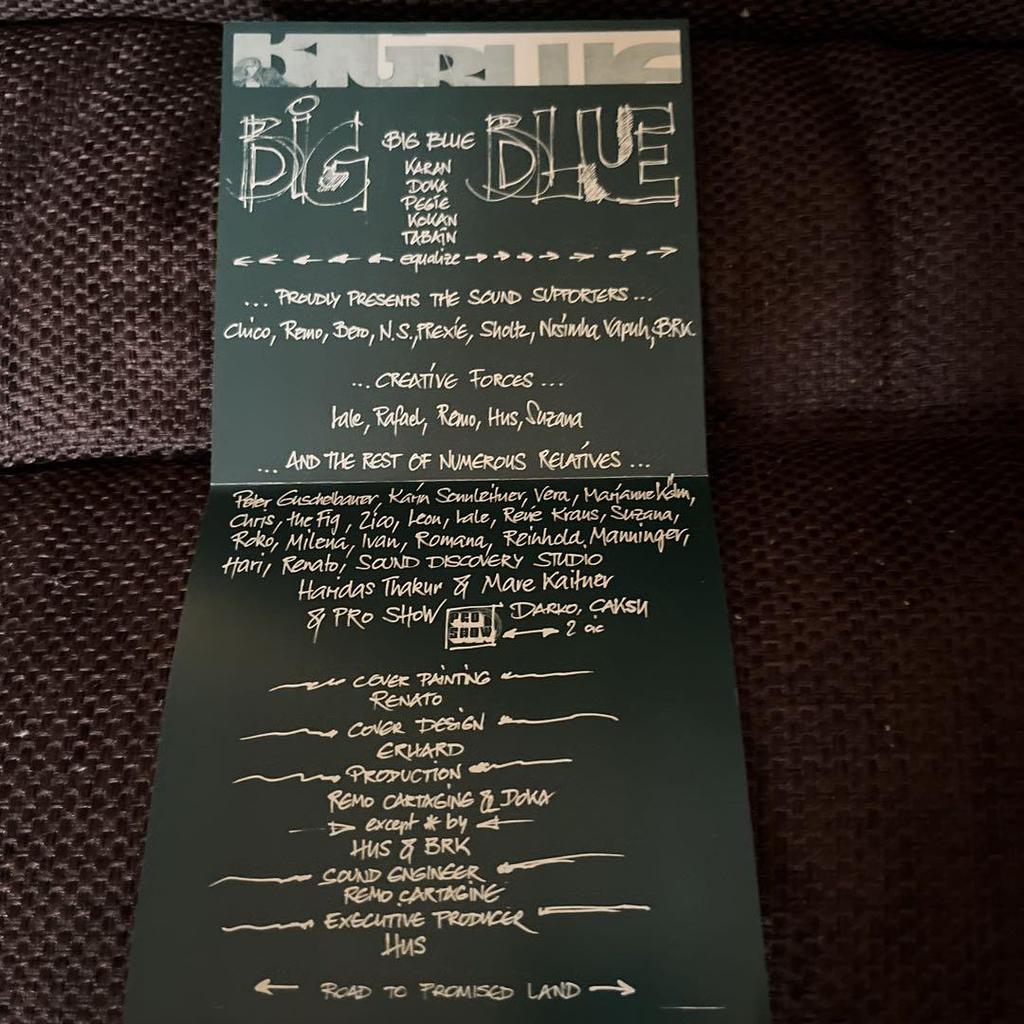 BIG BLUE
BIG BLUE
BIG BLUE
KARAN
DOKA
PEGIE
KOKAN
TABAIN
equalize
... PROUDLY PRESENTS THE SOUND SUPPORTERS ...
Chico, Remo, Bero, N.S., PREXIE, Sholtz, Nrsimha Vapuh, BRK
... CREATIVE FORCES ...
Lale, Rafael, Remo, Hus, Suzana
... AND THE REST OF NUMEROUS RELATIVES ...
Peter Guschelbauer, Karin Sonnleitner, Vera, Marianne Kölm,
Chris, the Fig, Zico, Leon, Lale, Rene Kraus, Suzana,
Roko, Milena, Ivan, Romana, Reinhold Manninger,
Hari, Renato, SOUND DISCOVERY STUDIO
Haridas Thakur & Mare Kaitner
& PRO SHOW PRO SHOW DARKO, CAKSY
2 oic
COVER PAINTING
RENATO
COVER DESIGN
ERHARD
PRODUCTION
REMO CARTAGINE & DOKA
except * by
HUS & BRK
SOUND ENGINEER
REMO CARTAGINE
EXECUTIVE PRODUCER
HUS
ROAD TO PROMISED LAND